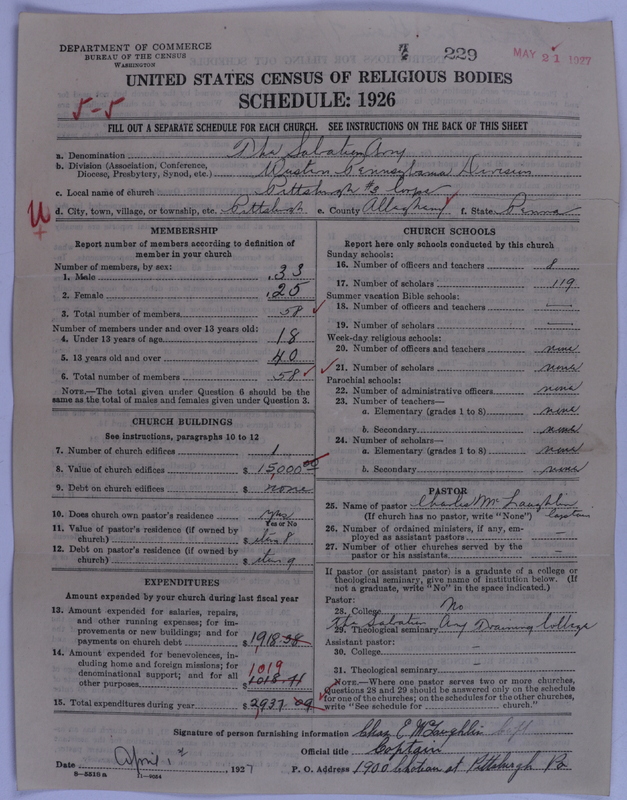 DEPARTMENT OF COMMERCE
BUREAU OF THE CENSUS
WASHINGTON
7 229
MAY 21 1927
UNITED STATES CENSUS OF RELIGIOUS BODIES
SCHEDULE: 1926
5-5
FILL OUT A SEPARATE SCHEDULE FOR EACH CHURCH. SEE INSTRUCTIONS ON THE BACK OF THIS SHEET
a. Denomination The Salvation Army
b. Division (Association, Conference, Diocese, Presbytery, Synod, etc.) Western Pennsylvania Division
c. Local name of church Pittsburgh #3 Corps
d. City, town, village, or township, etc. Pittsburgh e. County Allegheny f. State Penna
U
MEMBERSHIP
Report number of members according to definition of
member in your church
Number of members, by sex:
1. Male 33
2. Female 25
3. Total number of members 58
Number of members under and over 13 years old:
4. Under 13 years of age 18
5. 13 years old and over 40
6. Total number of members 58
NOTE.—The total given under Question 6 should be the
same as the total of males and females given under Question 3.
CHURCH BUILDINGS
See instructions, paragraphs 10 to 12
7. Number of church edifices 1
8. Value of church edifices $ 15,000 00
9. Debt on church edifices $ none
10. Does church own pastor's residence yes
Yes or No
11. Value of pastor's residence (if owned by
church) $ item 8
12. Debt on pastor's residence (if owned by
church) $ item 9
EXPENDITURES
Amount expended by your church during last fiscal year
13. Amount expended for salaries, repairs,
and other running expenses; for im-
provements or new buildings; and for
payments on church debt $ 1918.38
14. Amount expended for benevolences, in-
cluding home and foreign missions; for
denominational support; and for all
other purposes $ 1019
15. Total expenditures during year $ 2937.04
CHURCH SCHOOLS
Report here only schools conducted by this church
Sunday schools:
16. Number of officers and teachers 8
17. Number of scholars 119
Summer vacation Bible schools:
18. Number of officers and teachers —
19. Number of scholars —
Week-day religious schools:
20. Number of officers and teachers none
21. Number of scholars none
Parochial schools:
22. Number of administrative officers none
23. Number of teachers—
a. Elementary (grades 1 to 8) none
b. Secondary none
24. Number of scholars—
a. Elementary (grades 1 to 8) none
b. Secondary none
PASTOR
25. Name of pastor Charles McLaughlin
(If church has no pastor, write "None") Captain
26. Number of ordained ministers, if any, em-
ployed as assistant pastors —
27. Number of other churches served by the
pastor or his assistants —
If pastor (or assistant pastor) is a graduate of a college or
theological seminary, give name of institution below. (If
not a graduate, write "No" in the space indicated.)
Pastor:
28. College No
29. Theological seminary The Salvation Army Training College
Assistant pastor:
30. College —
31. Theological seminary —
NOTE.—Where one pastor serves two or more churches,
Questions 28 and 29 should be answered only on the schedule
for one of the churches; on the schedules for the other churches,
write "See schedule for church."
Signature of person furnishing information Chas E McLaughlin Capt
Official title Captain
Date April 1st, 1927 P. O. Address 1900 at Pittsburgh Pa
8—5510 a